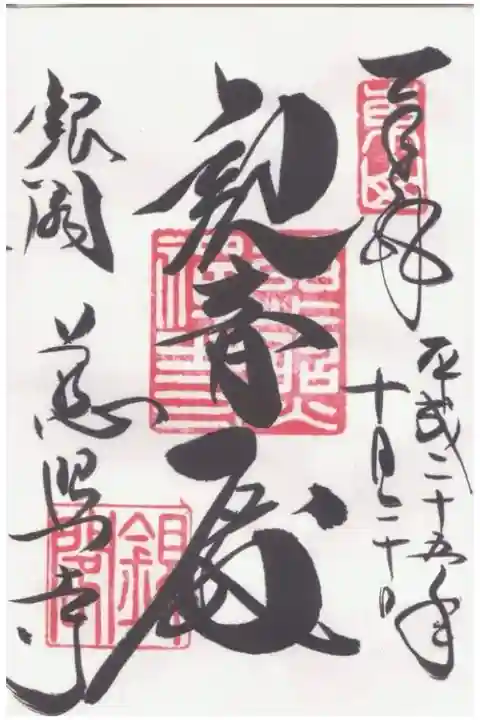 奉拝
平成二十五年
十月二十日
観音殿
銀閣 慈照寺
銀閣